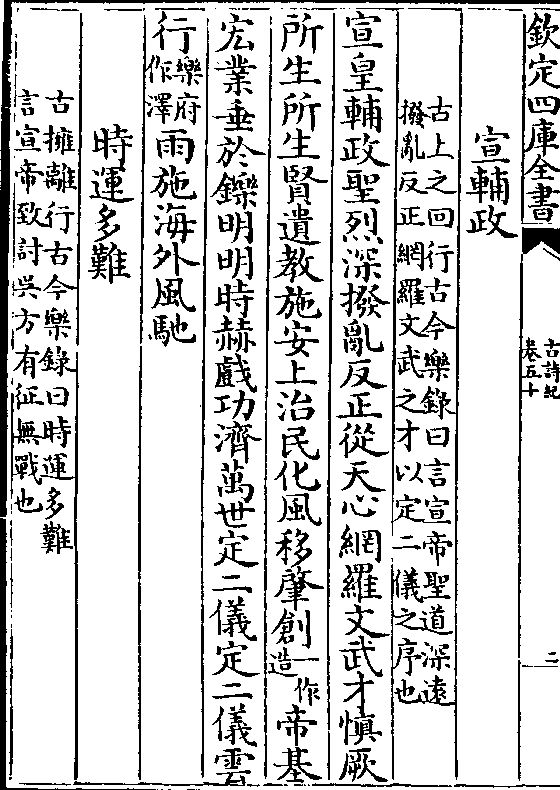 欽定四庫全書
古詩紀
卷五十
二
宣輔政
古上之回行古今樂錄曰言宣帝聖道深遠
撥亂反正網羅文武之才以定二儀之序也
宣皇輔政聖烈深撥亂反正從天心網羅文武才慎厥
所生所生賢遺教施安上治民化風移肇創一作造帝基
宏業垂於鑠明明時赫戲功濟萬世定二儀定二儀雲
行樂府作澤雨施海外風馳
時運多難
古擁離行古今樂錄曰時運多難
言宣帝致討吳方有征無戰也